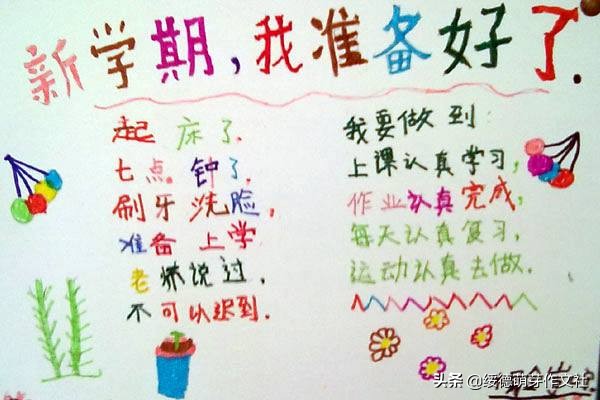 新学期,我准备好了.
起床了.
七点钟了.
刷牙洗脸,
准备上学
老师说过,
不可以迟到.
我要做到:
上课认真学习,
作业认真完成,
每天认真复习,
运动认真去做.
头条 @绥德萌芽作文社